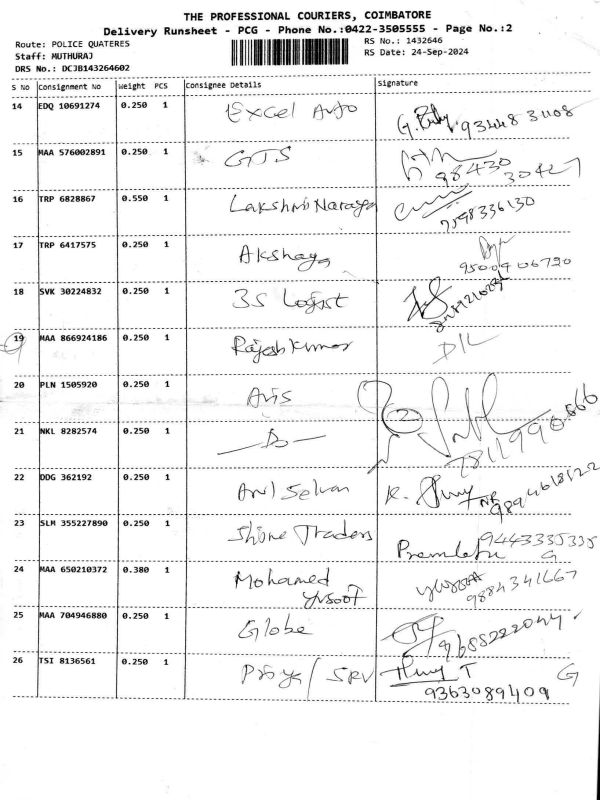 THE PROFESSIONAL COURIERS, COIMBATORE
Delivery Runsheet - PCG - Phone No.:0422-3505555 - Page No.:2
Route: POLICE QUATERES RS No.: 1432646
Staff: MUTHURAJ RS Date: 24-Sep-2024
DRS No.: DCJB143264602
S No Consignment No Weight PCS Consignee Details Signature
14 EDQ 10691274 0.250 1 Excel Auto
15 MAA 576002891 0.250 1 GTS 98430 30427
16 TRP 6828867 0.550 1 Lakshmi Naraya 7598336130
17 TRP 6417575 0.250 1 Akshaya 9500406720
18 SVK 30224832 0.250 1 3S Logist
19 MAA 866924186 0.250 1 Rajesh Kumar D/L
20 PLN 1505920 0.250 1 Avis 2
21 NKL 8282574 0.250 1 -Do- 7811990666
22 DDG 362192 0.250 1 Arul Selvan K.
23 SLM 355227890 0.250 1 Shine Traders 9443335335
Premlatha G
24 MAA 650210372 0.380 1 Mohamed
Yusoof 9884341667
25 MAA 704946880 0.250 1 Globe 9688222044
26 TSI 8136561 0.250 1 Priya / SRV T G
9363089409